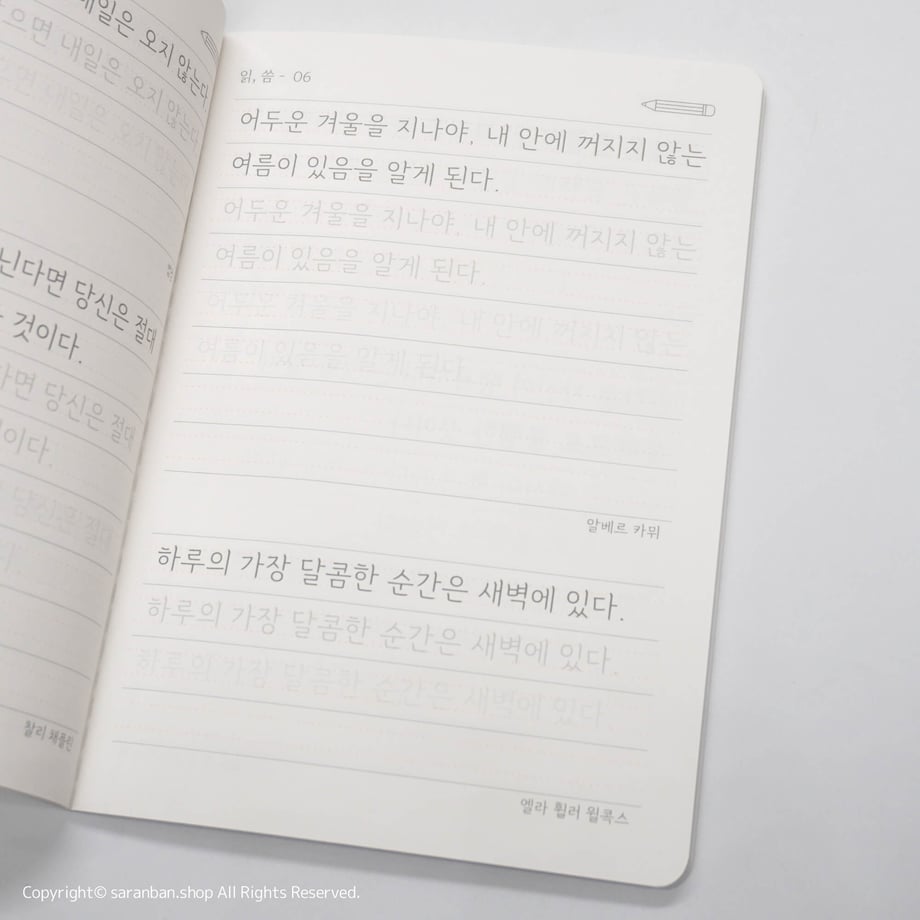 내일은 오지 않는다
으면 내일은 오지 않는다
으면 내일은 오지 않는다
닌다면 당신은 절대
것이다.
다면 당신은 절대
이다.
당신은 절대
다.
찰리 채플린
읽, 씀 - 06
어두운 겨울을 지나야, 내 안에 꺼지지 않는
여름이 있음을 알게 된다.
어두운 겨울을 지나야, 내 안에 꺼지지 않는
여름이 있음을 알게 된다.
어두운 겨울을 지나야, 내 안에 꺼지지 않는
여름이 있음을 알게 된다.
알베르 카뮈
하루의 가장 달콤한 순간은 새벽에 있다.
하루의 가장 달콤한 순간은 새벽에 있다.
하루의 가장 달콤한 순간은 새벽에 있다.
엘라 휠러 윌콕스
Copyright© saranban.shop All Rights Reserved.